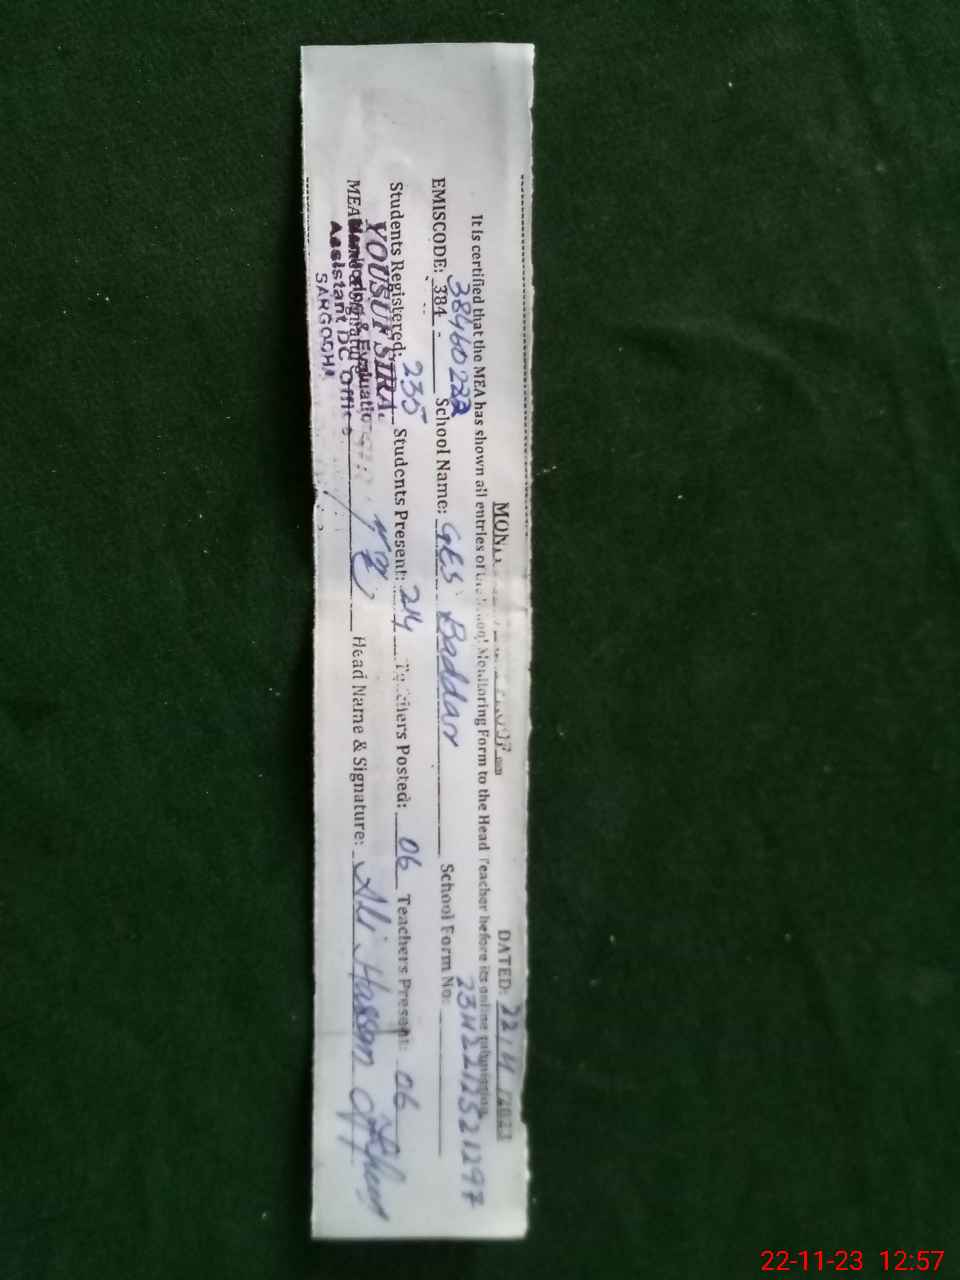 DATED: 22/11/2023
It is certified that the MEA has shown all entries of Monitoring Form to the Head Teacher before its online submission
EMISCODE: 384 - 38460222 School Name: GES Baddar School Form No: 23112212521297
Students Registered: 235 Students Present: 214 Teachers Posted: 06 Teachers Present: 06
MEA Head Name & Signature: Ali Hassan
YOUSUF SIRA
Monitoring & Evaluation
Assistant DC Office
SARGODHA
22-11-23 12:57